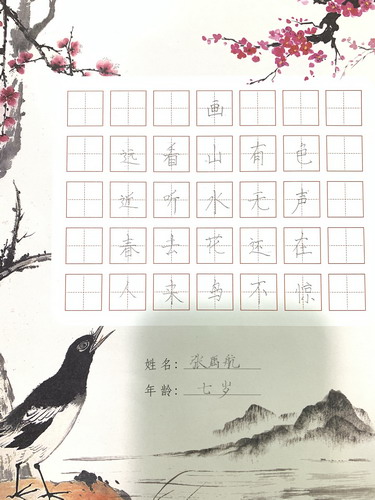 画
远看山有色
近听水无声
春去花还在
人来鸟不惊
姓名：张禹航
年龄：七岁